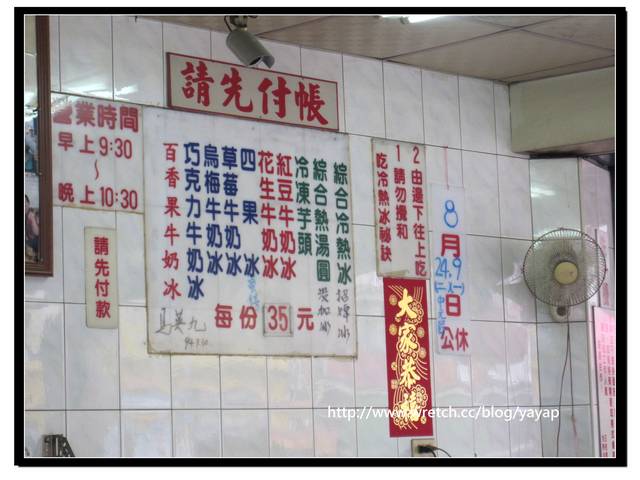 請先付帳
營業時間
早上9:30
~
晚上10:30
請先付款
綜合冷熱冰
招牌冰
綜合熱湯圓
沒加冰
冷凍芋頭
紅豆牛奶冰
花生牛奶冰
四果冰
草莓牛奶冰
烏梅牛奶冰
巧克力牛奶冰
百香果牛奶冰
每份35元
馬英九
吃冷熱冰祕訣
1請勿攪和
2由邊下往上吃
8月
24.9日
公休
大家恭禧
http://www.wretch.cc/blog/yayap